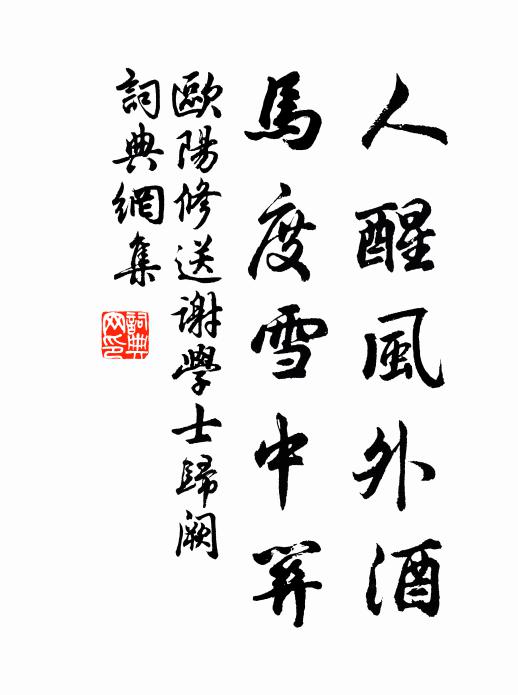 人醒風外酒
馬度雪中關
歐陽修送謝學士歸闕
詞典網集
詞典網印